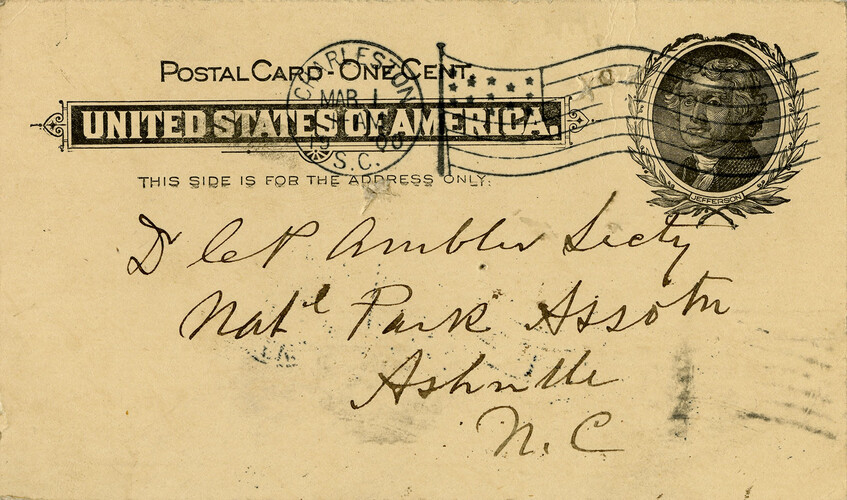 POSTAL CARD - ONE CENT.
UNITED STATES OF AMERICA.
THIS SIDE IS FOR THE ADDRESS ONLY.
CHARLESTON
MAR 1
S.C.
JEFFERSON
Dr C P Ambler Secty
Natl Park Assotn
Asheville
N. C